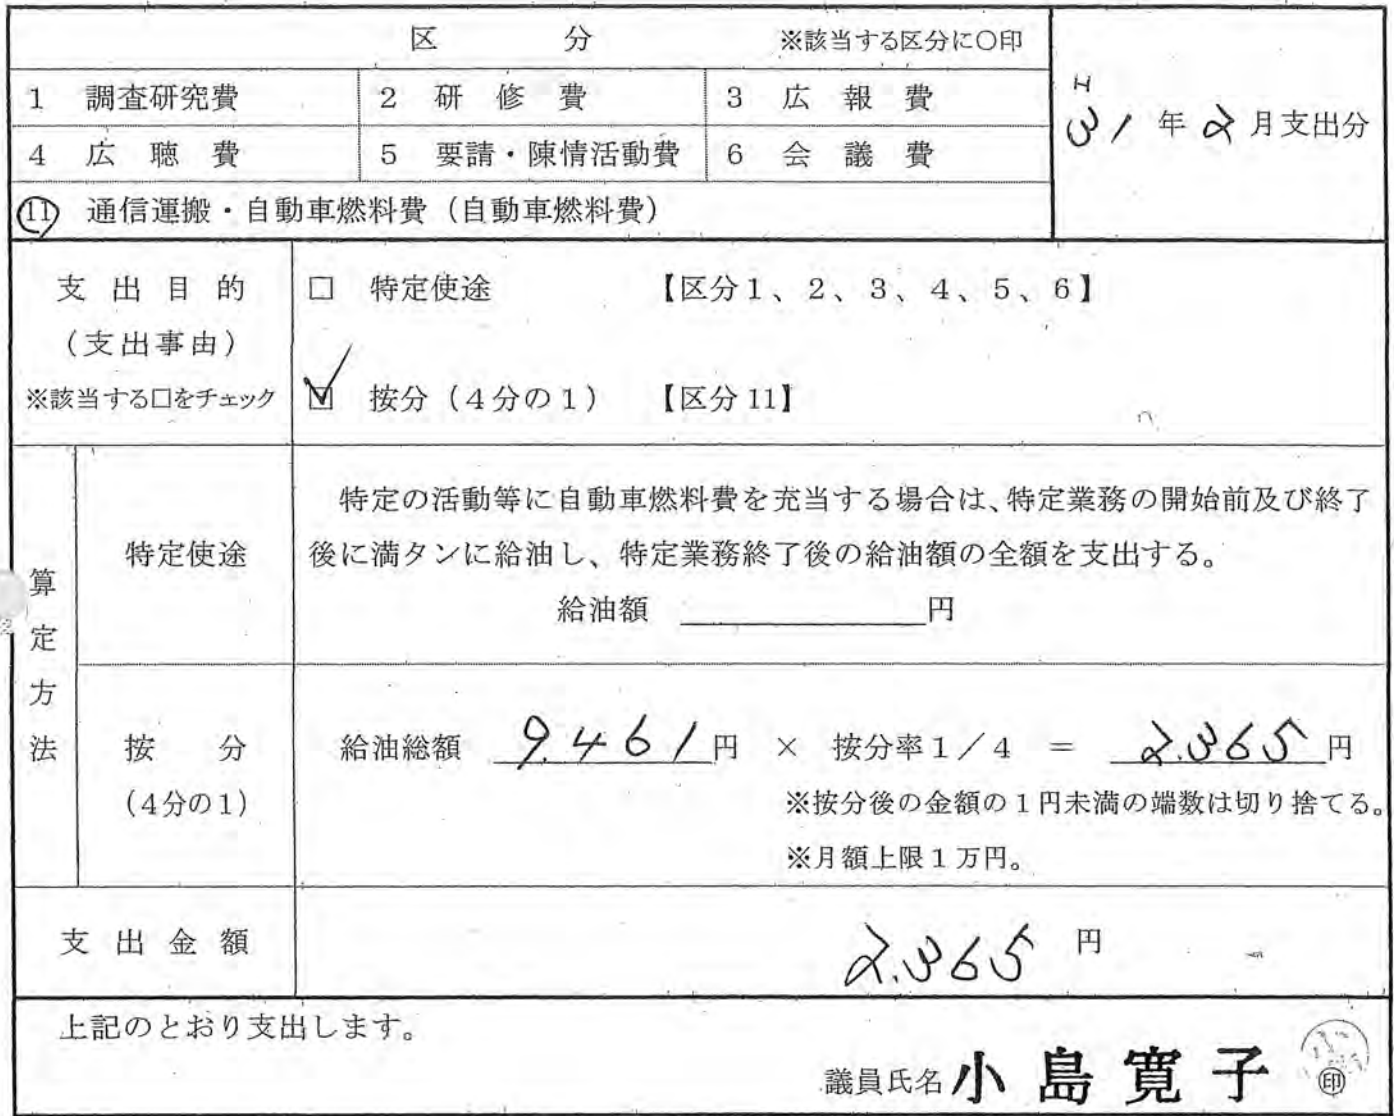 区　　　分　　　※該当する区分に○印
1　調査研究費　2　研　修　費　3　広　報　費
H
31 年 2 月支出分
4　広　聴　費　5　要請・陳情活動費　6　会　議　費
⑪　通信運搬・自動車燃料費（自動車燃料費）
支 出 目 的　□　特定使途　【区分1、2、3、4、5、6】
（支出事由）
※該当する□をチェック　☑　按分（4分の1）　【区分11】
算定方法
特定使途
特定の活動等に自動車燃料費を充当する場合は、特定業務の開始前及び終了
後に満タンに給油し、特定業務終了後の給油額の全額を支出する。
給油額　＿＿＿＿＿＿＿円
按　　分
（4分の1）
給油総額　9.461円　×　按分率1／4　=　2.365円
※按分後の金額の1円未満の端数は切り捨てる。
※月額上限1万円。
支 出 金 額　2.365 円
上記のとおり支出します。
議員氏名 小島寛子 ㊞